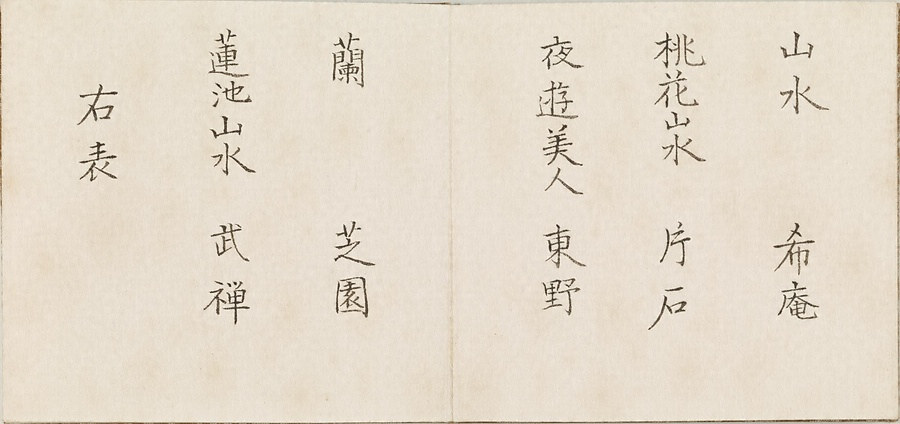 山水 希庵
桃花山水 片石
夜遊美人 東野
蘭 芝園
蓮池山水 武禅
右表